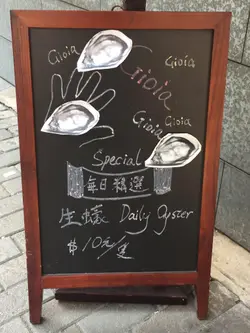 Gioia
Gioia
Gioia
Gioia
Gioia
Special
每日精選
生蠔 Daily Oyster
$10元/隻